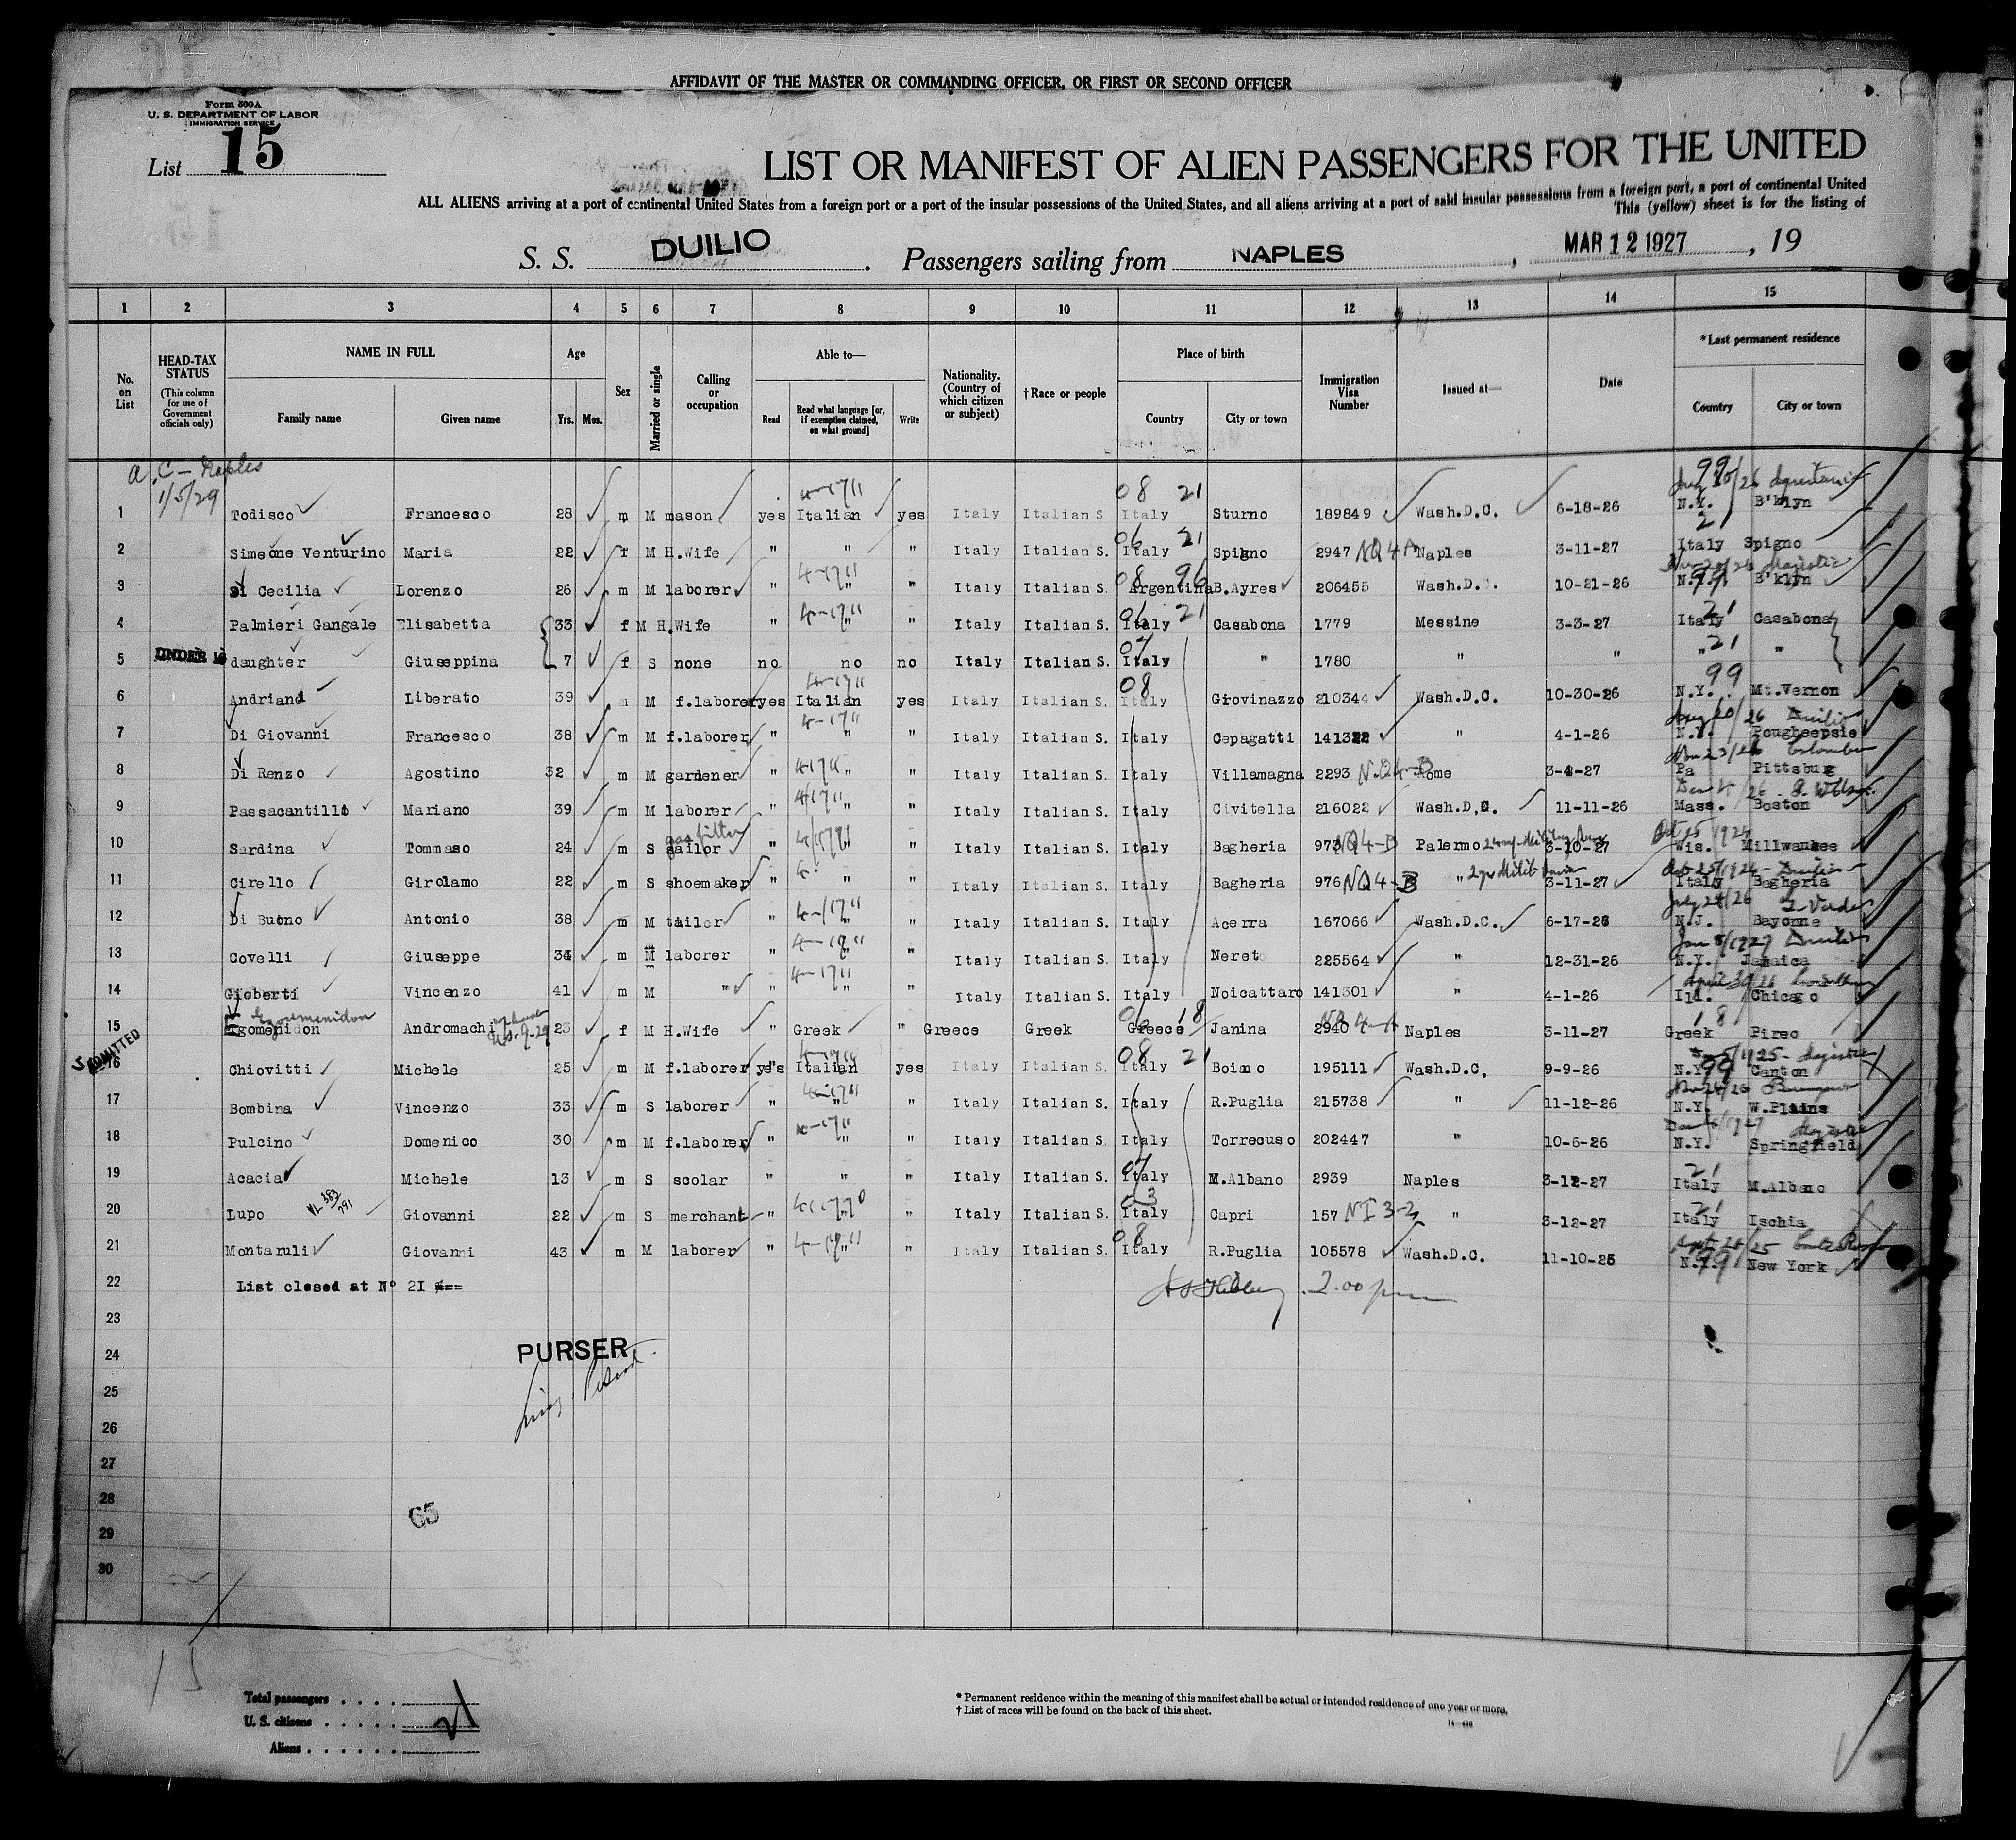 AFFIDAVIT OF THE MASTER OR COMMANDING OFFICER, OR FIRST OR SECOND OFFICER
Form 500A
U. S. DEPARTMENT OF LABOR
IMMIGRATION SERVICE
List 15
LIST OR MANIFEST OF ALIEN PASSENGERS FOR THE UNITED
ALL ALIENS arriving at a port of continental United States from a foreign port or a port of the insular possessions of the United States, and all aliens arriving at a port of said insular possessions from a foreign port, a port of continental United
This (yellow) sheet is for the listing of
S. S. DUILIO . Passengers sailing from NAPLES , MAR 12 1927 , 19
1 2 3 4 5 6 7 8 9 10 11 12 13 14 15
No. on List
HEAD-TAX STATUS (This column for use of Government officials only)
NAME IN FULL Family name Given name
Age Yrs. Mos.
Sex
Married or single
Calling or occupation
Able to— Read Read what language [or, if exemption claimed, on what ground] Write
Nationality. (Country of which citizen or subject)
†Race or people
Place of birth Country City or town
Immigration Visa Number
Issued at—
Date
*Last permanent residence Country City or town
a.C – Naples
1/5/29
1 Todisco Francesco 28 m M mason yes Italian yes Italy Italian S Italy Sturno 189849 Wash.D.C. 6-18-26 N.Y. B'klyn
2 Simeone Venturino Maria 22 f M H.Wife " " " Italy Italian S. Italy Spigno 2947 NQ4-A Naples 3-11-27 Italy Spigno
3 Di Cecilia Lorenzo 26 m M laborer " " " Italy Italian S. Argentina B.Ayres 206455 Wash.D.C. 10-21-26 N.Y. B'klyn
4 Palmieri Gangale Elisabetta 33 f M H.Wife " " " Italy Italian S. Italy Casabona 1779 Messine 3-3-27 Italy Casabona
5 UNDER 16 daughter Giuseppina 7 f S none no no no Italy Italian S. Italy " 1780 " " " "
6 Andriani Liberato 39 m M f.laborer yes Italian yes Italy Italian S. Italy Giovinazzo 210344 Wash.D.C. 10-30-26 N.Y. Mt.Vernon
7 Di Giovanni Francesco 38 m M f.laborer " " " Italy Italian S. Italy Cepagatti 141322 " 4-1-26 N.Y. Pougheepsie
8 Di Renzo Agostino 32 m M gardener " " " Italy Italian S. Italy Villamagna 2293 NQ4-B Rome 3-4-27 Pa Pittsburg
9 Passacantilli Mariano 39 m M laborer " " " Italy Italian S. Italy Civitella 216022 Wash.D.C. 11-11-26 Mass. Boston
10 Sardina Tommaso 24 m S gasfitter sailor " " " Italy Italian S. Italy Bagheria 973 NQ4-B Palermo 3-10-27 Wis. Millwaukee
11 Cirello Girolamo 22 m S shoemaker " " Italy Italian S. Italy Bagheria 976 NQ4-B " 3-11-27 Italy Bagheria
12 Di Buono Antonio 38 m M tailor " " " Italy Italian S. Italy Acerra 167066 Wash.D.C. 6-17-26 N.J. Bayonne
13 Covelli Giuseppe 34 m M laborer " " " Italy Italian S. Italy Nereto 225564 " 12-31-26 N.Y. Jamaica
14 Gioberti Vincenzo 41 m M " " " " Italy Italian S. Italy Noicattaro 141301 " 4-1-26 Ill. Chicago
15 Egomenidon Andromachi 23 f M H.Wife " Greek " Greece Greek Greece Janina 2940 NQ4-A Naples 3-11-27 Greek Pireo
ADMITTED
16 Chiovitti Michele 25 m M f.laborer yes Italian yes Italy Italian S. Italy Boiano 195111 Wash.D.C. 9-9-26 N.Y. Canton
17 Bombina Vincenzo 33 m S laborer " " " Italy Italian S. Italy R.Puglia 215738 " 11-12-26 N.Y. W.Plains
18 Pulcino Domenico 30 m M f.laborer " " " Italy Italian S. Italy Torrecuso 202447 " 10-6-26 N.Y. Springfield
19 Acacia Michele 13 m S scolar " " " Italy Italian S. Italy M.Albano 2939 Naples 3-12-27 Italy M.Albano
20 Lupo Giovanni 22 m S merchant " " " Italy Italian S. Italy Capri 157 NI 3-2 " 3-12-27 Italy Ischia
21 Montaruli Giovanni 43 m M laborer " " " Italy Italian S. Italy R.Puglia 105578 Wash.D.C. 11-10-25 N.Y. New York
22 List closed at N° 21 2.00 pm
23
24 PURSER
25
26
27
28
29
30
65
15
Total passengers . . . .
U. S. citizens . . . . . 21
Aliens . . . . . .
* Permanent residence within the meaning of this manifest shall be actual or intended residence of one year or more.
† List of races will be found on the back of this sheet.